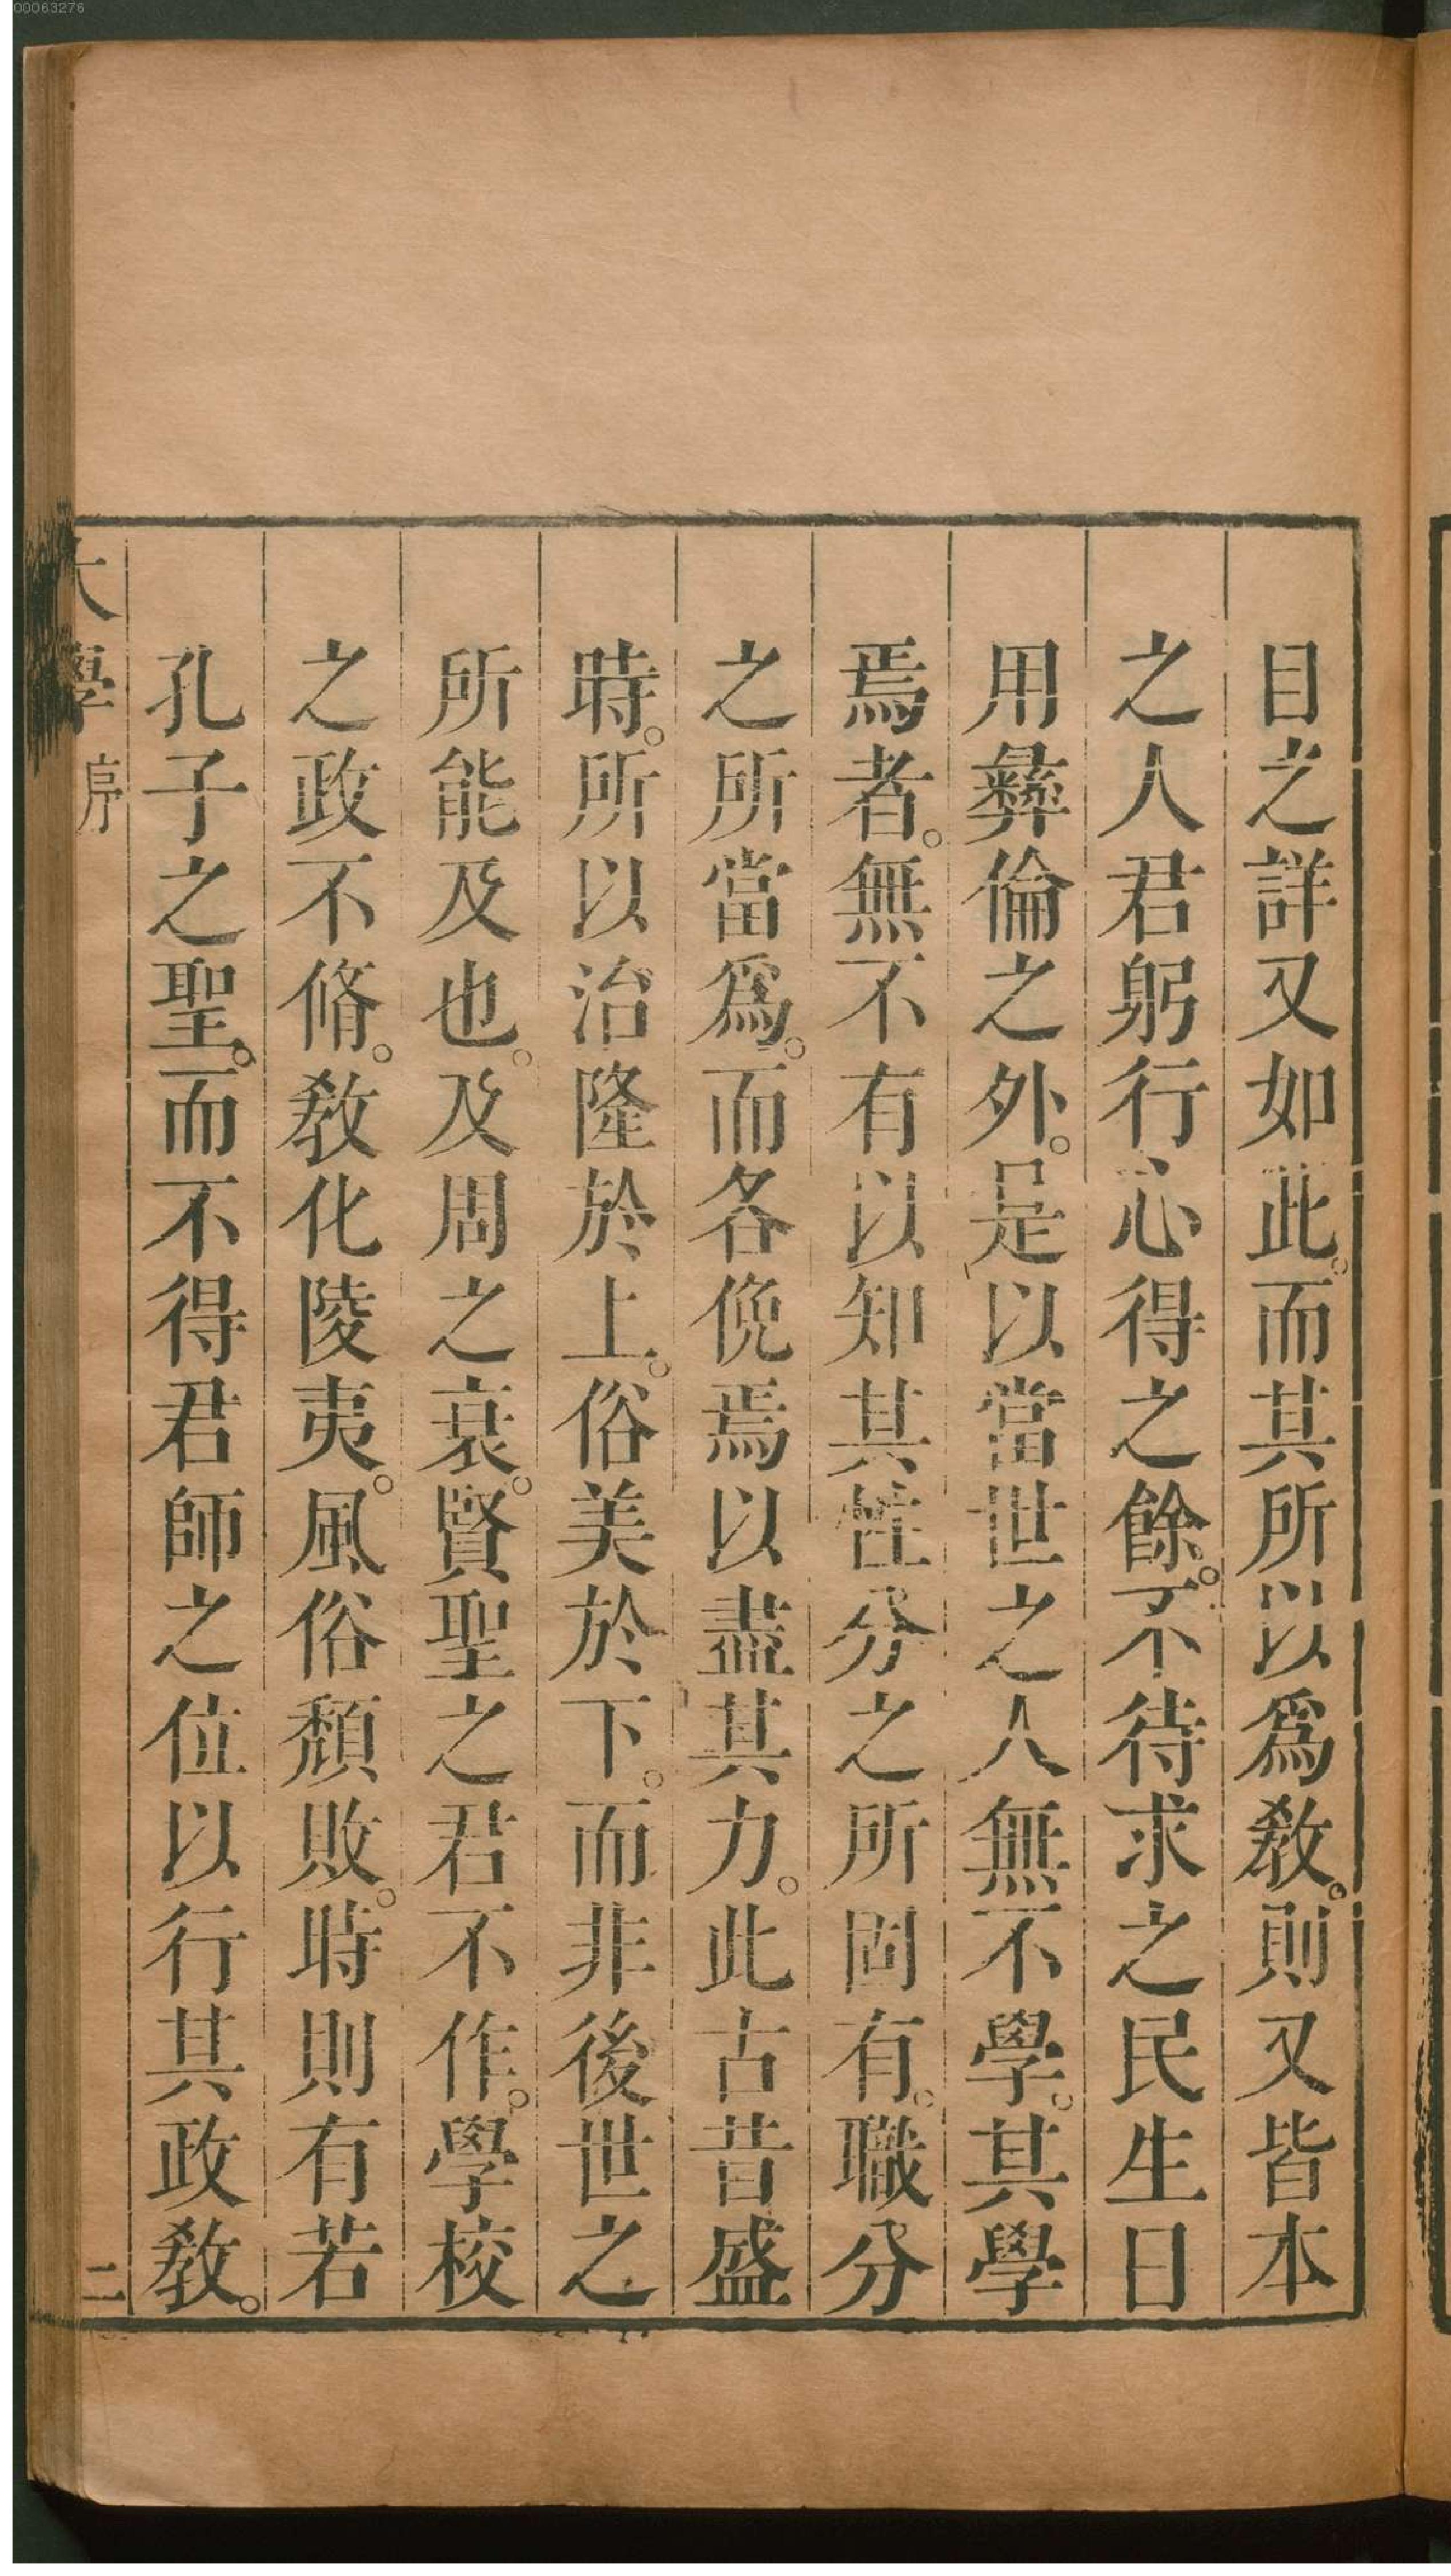 00063276
目之詳又如此。而其所以爲教。則又皆本
之人君躬行心得之餘。不待求之民生日
用彝倫之外。是以當世之人無不學。其學
焉者。無不有以知其性分之所固有。職分
之所當爲。而各俛焉以盡其力。此古昔盛
時。所以治隆於上。俗美於下。而非後世之
所能及也。及周之衰。賢聖之君不作。學校
之政不脩。教化陵夷。風俗頹敗。時則有若
孔子之聖。而不得君師之位以行其政教。
大學序 二